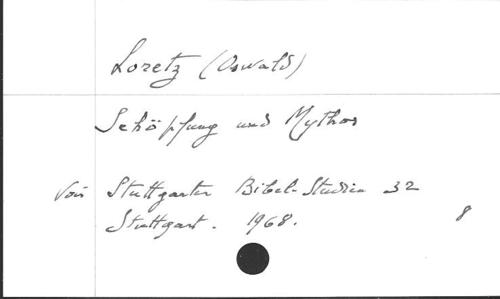 Loretz (Oswald)
Schöpfung und Mythos
Voir Stuttgarter Bibel-Studien 32
Stuttgart. 1968. 8